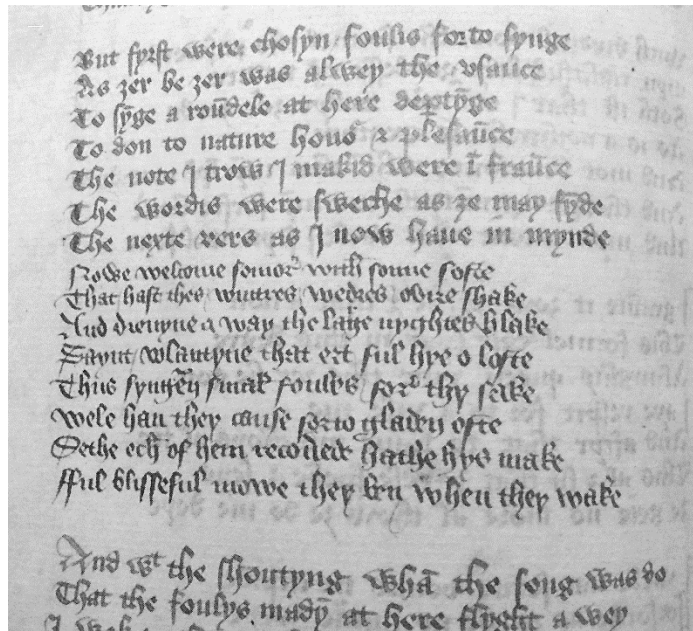 But fyrst were chosyn foulis forto synge
As ȝer be ȝer was alwey the vsaūce
To sȳge a roūdele at here deptȳge
To don to nature honoͬ & plesaūce
The note J trow J makid were ī fraūce
The wordis were sweche as ȝe may fȳde
The nexte vers as J now haue in mynde
Nowe welcome somor with sonne softe
That hast thes wintres wedres ovire shake
And drevyne a way the large nyghtes blake
Saynt volantyne that ert ful hye o lofte
Thus syngen smal foules for thy sake
Wele han they cause forto gladen ofte
Sethe ech of hem recoverede hathe hys make
Fful blisseful mowe they ben when they wake
And wt the shoutyng whā the song was do
That the foulys madȳ at here flyght a wey